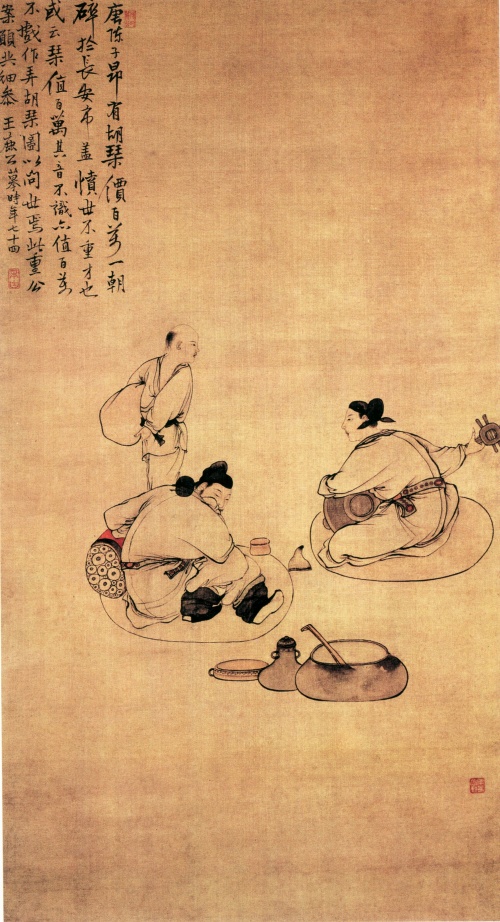 唐陳子昂有胡琴價百萬一朝
碎於長安市蓋憤世不重才也
或云琴值百萬其音不識亦值百萬
不戲作弄胡琴圖以問世焉此重公
案願共細參 王公摹時年七十四